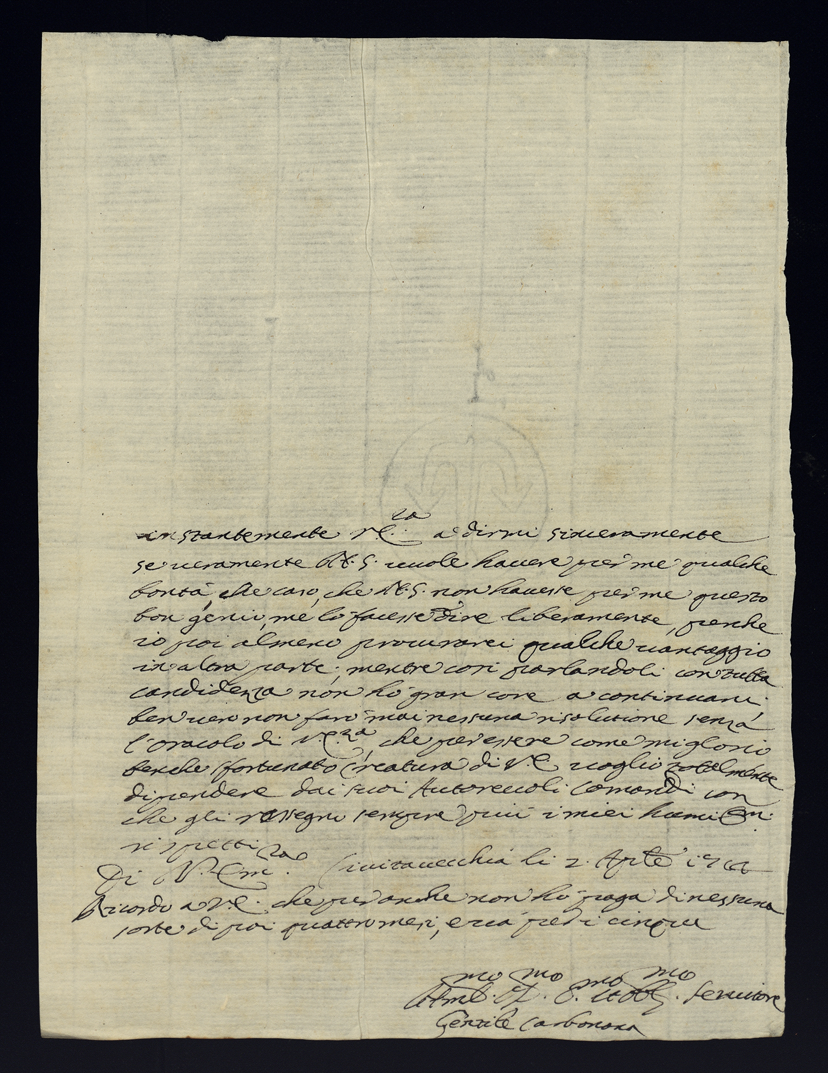 instantemente V.E.za a dirmi sinceramente
se veramente N.S. vuole havere per me qualche
bontà, che caso, che N.S. non havesse per me questo
bon genio, me lo facesse dire liberamente, perche
io poi almeno procurarei qualche vantaggio
in altra parte; mentre così parlandoli con tutta
candidezza non ho gran core a continuarvi
ben vero non farò mai nessuna risolutione senza
l'oracolo di V.E.za, che per essere come mi glorio
benche fortunato Creatura di V.E. voglio totalmente
dipendere dai suoi Autorevoli Comandi con
che gli rassegno sempre più i miei humilmi
rispetti
Di V. Em.za Civitavecchia li 2. Aprile
Ricordo a V.E. che per anche non ho paga di nessuna
sorte di poi quattro mesi, e va per i cinque
Humo Devmo Servitore
Gentile Carbonara